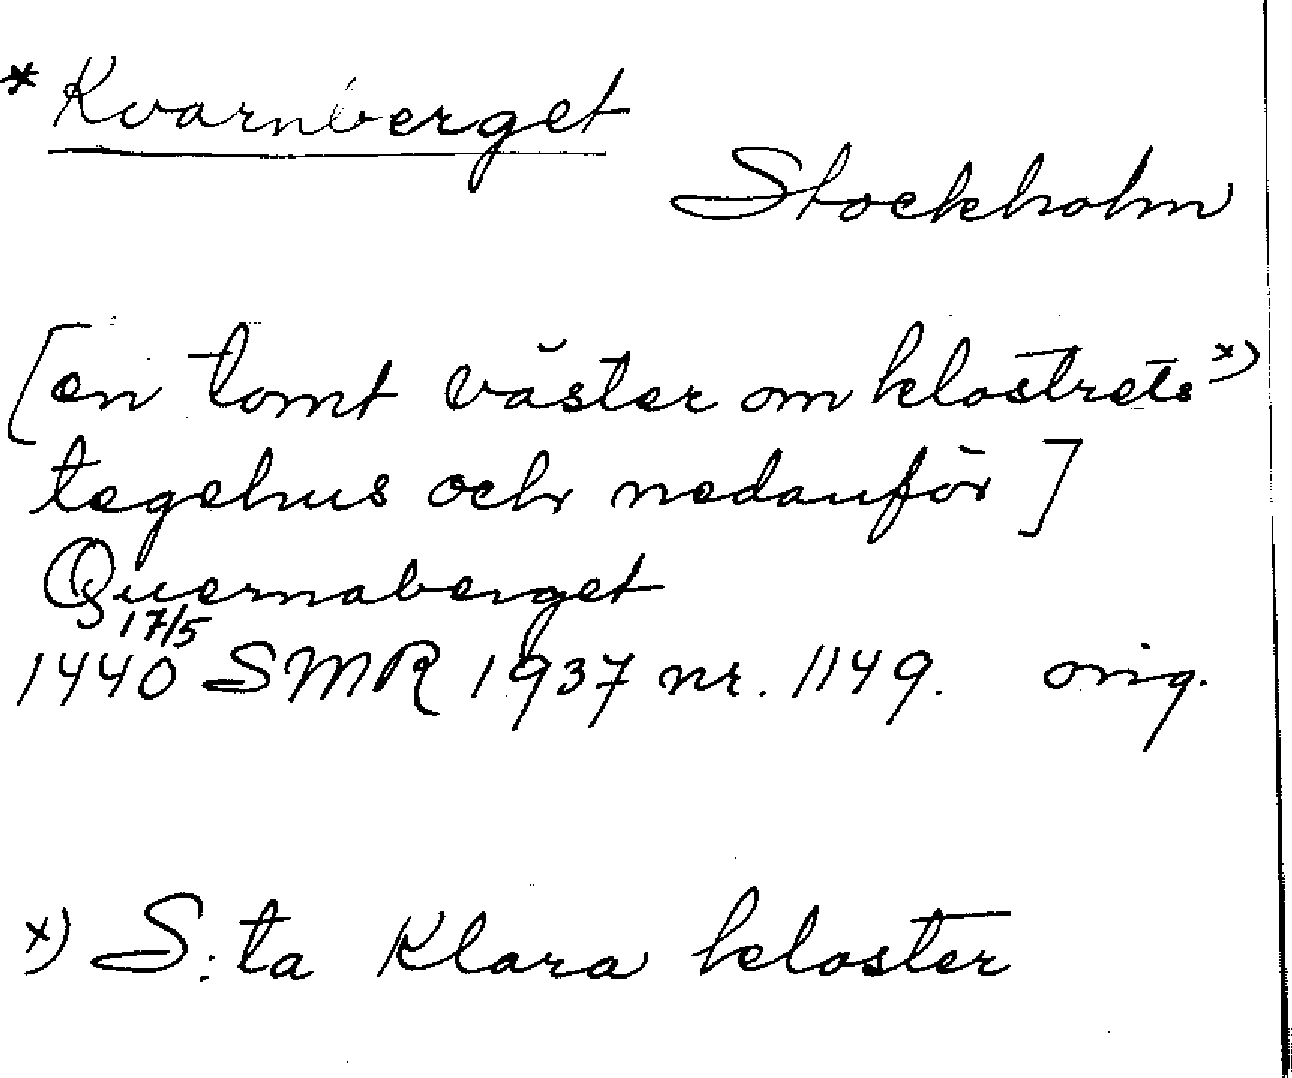 * Kvarnberget
Stockholm
[en tomt väster om klostrets x)
tegehus och nedanför]
Quernaberget
17/5
1440 SMR 1937 nr. 1149. orig.
x) S:ta Klara kloster